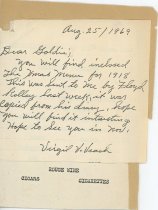 Aug. 25/1969
Dear Goldie;
You will find inclosed
The Xmas Menu for 1918
This was sent to me by Floyd
Kelley last week, it was
copied from his diary, hope
you will find it interesting
Hope to see you in Nov.
Virgil V. Veach
ROUGE WINE
CIGARS CIGARETTES